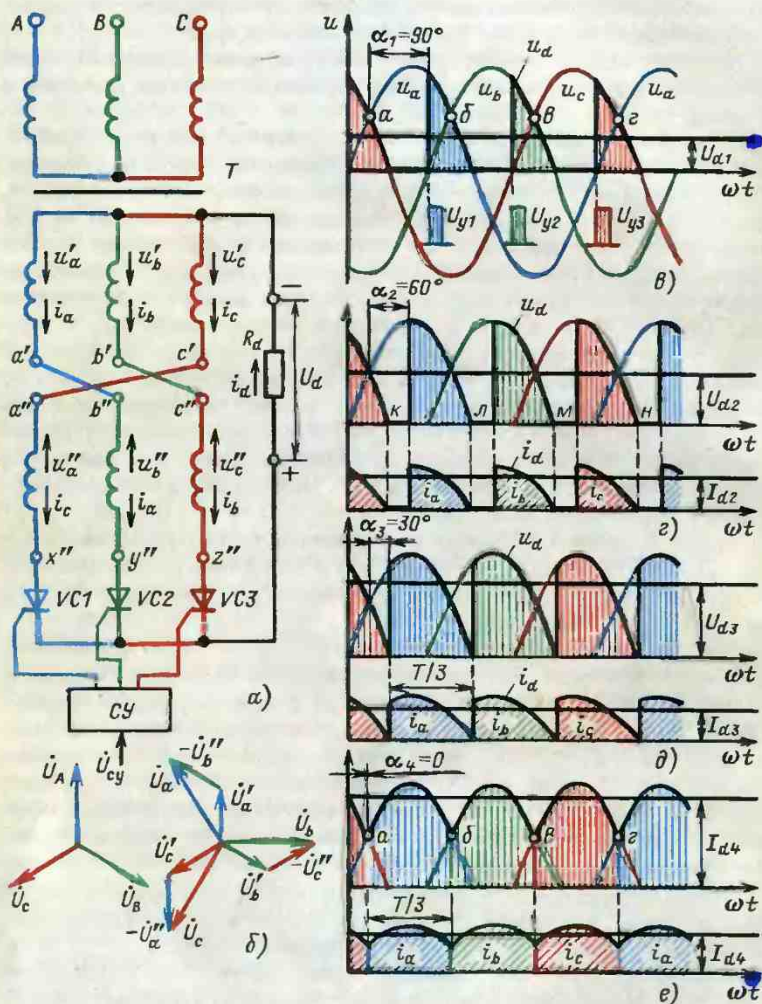 A B C
T
u'a u'b u'c
ia ib ic
a' b' c'
a" b" c"
u"a u"b u"c
ic ia ib
x" y" z"
VC1 VC2 VC3
СУ
U̇су
а)
−
Rd
id
Ud
+
U̇A
U̇c
U̇B
−U̇b"
U̇a
U̇a'
U̇b
U̇c'
U̇b'
−U̇c"
−U̇a"
U̇c
б)
u
α1=90°
ud
ua ub uc ua
а б в г
Ud1
ωt
Uy1 Uy2 Uy3
в)
α2=60°
ud
к л м н
Ud2
ωt
id
ia ib ic
Id2
г) ωt
α3=30°
ud
Ud3
ωt
T/3
id
ia ib ic
Id3
д) ωt
α4=0
а б в г
Id4
ωt
T/3
ia ib ic ia
Id4
е) ωt